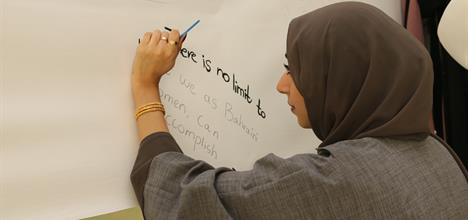 ere is no limit to
we as Bahrain
omen, Can
accomplish